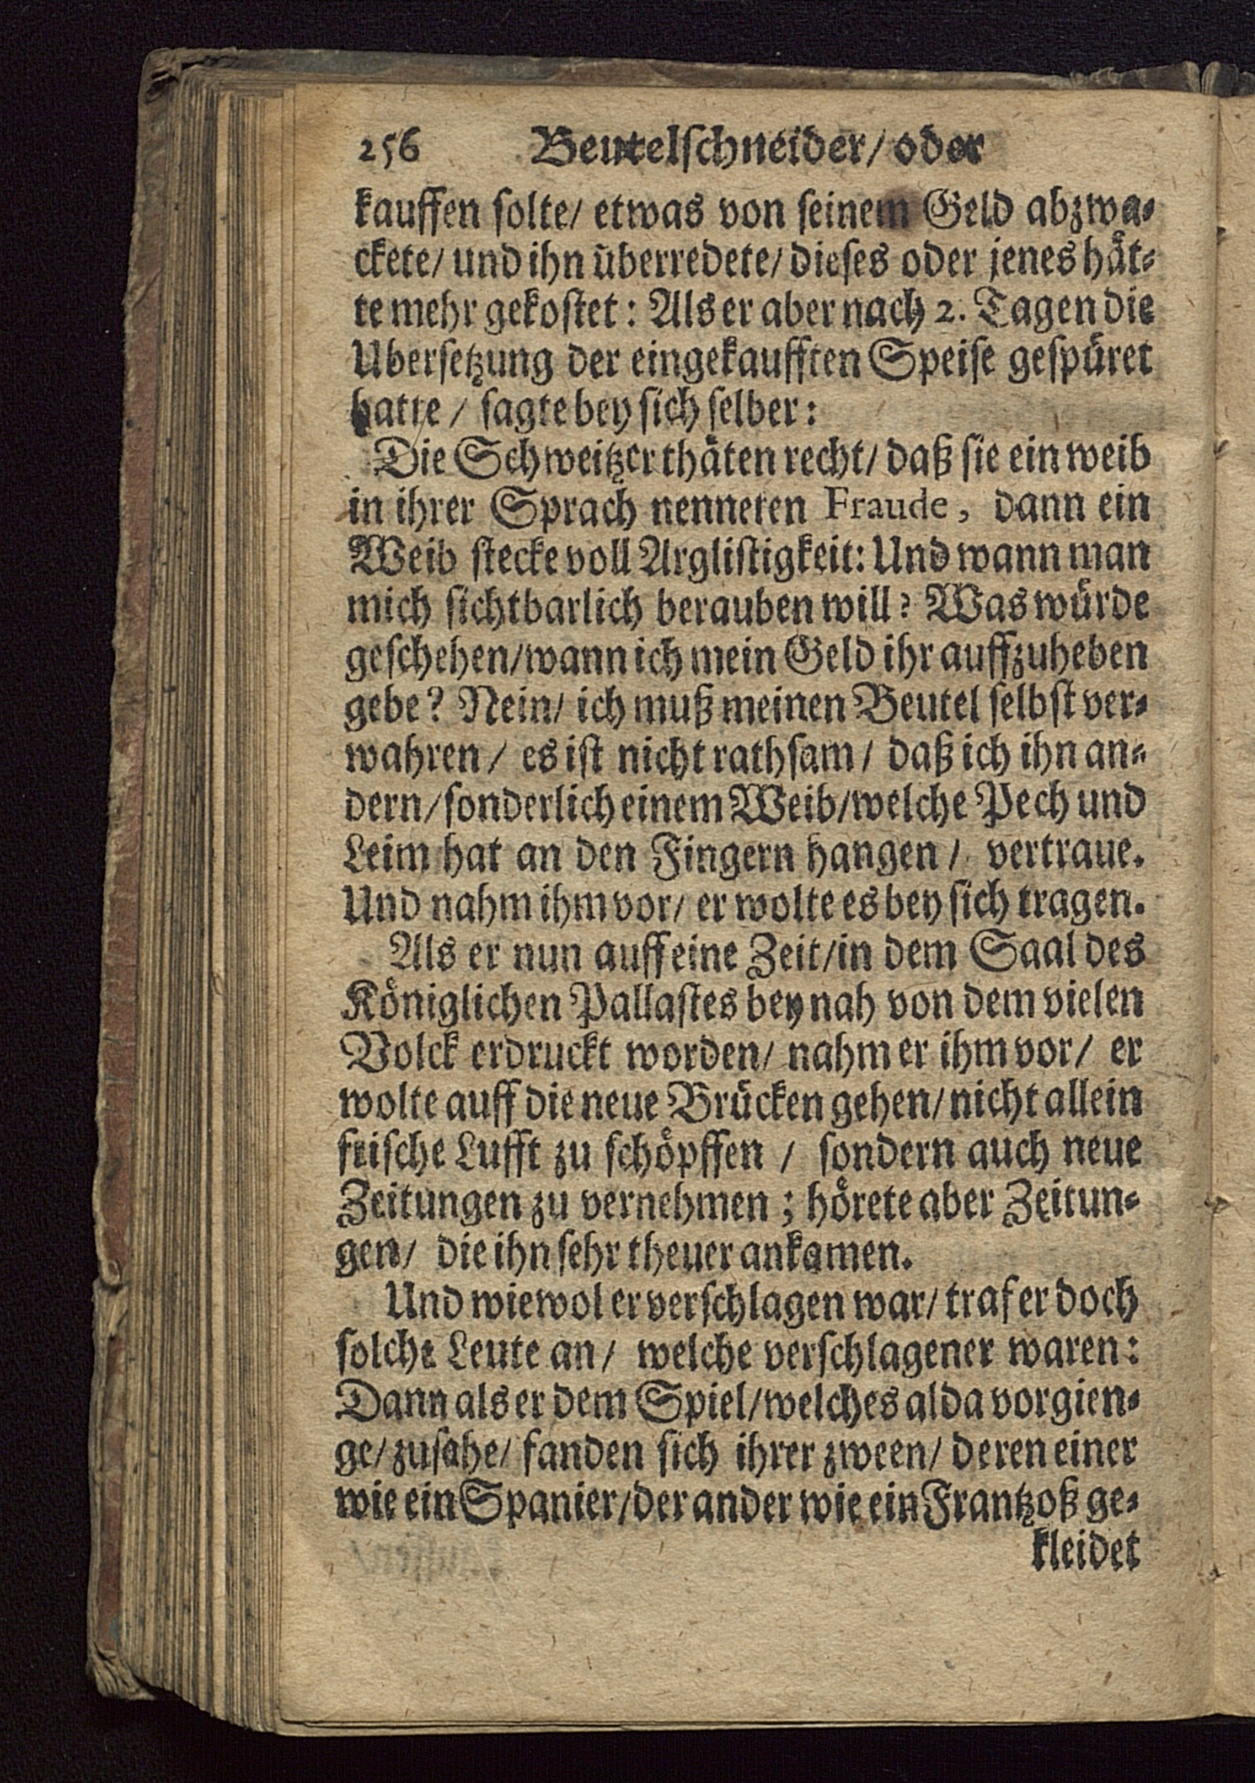 256 Beutelschneider/ oder
kauffen solte/ etwas von seinem Geld abzwa-
ckete/ und ihn überredete/ dieses oder jenes hät-
te mehr gekostet: Als er aber nach 2. Tagen die
Ubersetzung der eingekaufften Speise gespüret
hatte / sagte bey sich selber:
Die Schweitzer thäten recht/ daß sie ein weib
in ihrer Sprach nenneten Fraude, dann ein
Weib stecke voll Arglistigkeit: Und wann man
mich sichtbarlich berauben will? Was würde
geschehen/wann ich mein Geld ihr auffzuheben
gebe? Nein/ ich muß meinen Beutel selbst ver-
wahren / es ist nicht rathsam / daß ich ihn an-
dern/sonderlich einem Weib/welche Pech und
Leim hat an den Fingern hangen / vertraue.
Und nahm ihm vor/ er wolte es bey sich tragen.
Als er nun auff eine Zeit/in dem Saal des
Königlichen Pallastes bey nah von dem vielen
Volck erdruckt worden/ nahm er ihm vor/ er
wolte auff die neue Brücken gehen/ nicht allein
frische Lufft zu schöpffen / sondern auch neue
Zeitungen zu vernehmen ; hörete aber Zeitun-
gen/ die ihn sehr theuer ankamen.
Und wiewol er verschlagen war/ traf er doch
solche Leute an/ welche verschlagener waren:
Dann als er dem Spiel/welches alda vorgien-
ge/ zusahe/ fanden sich ihrer zween/ deren einer
wie ein Spanier/der ander wie ein Frantzoß ge-
kleidet